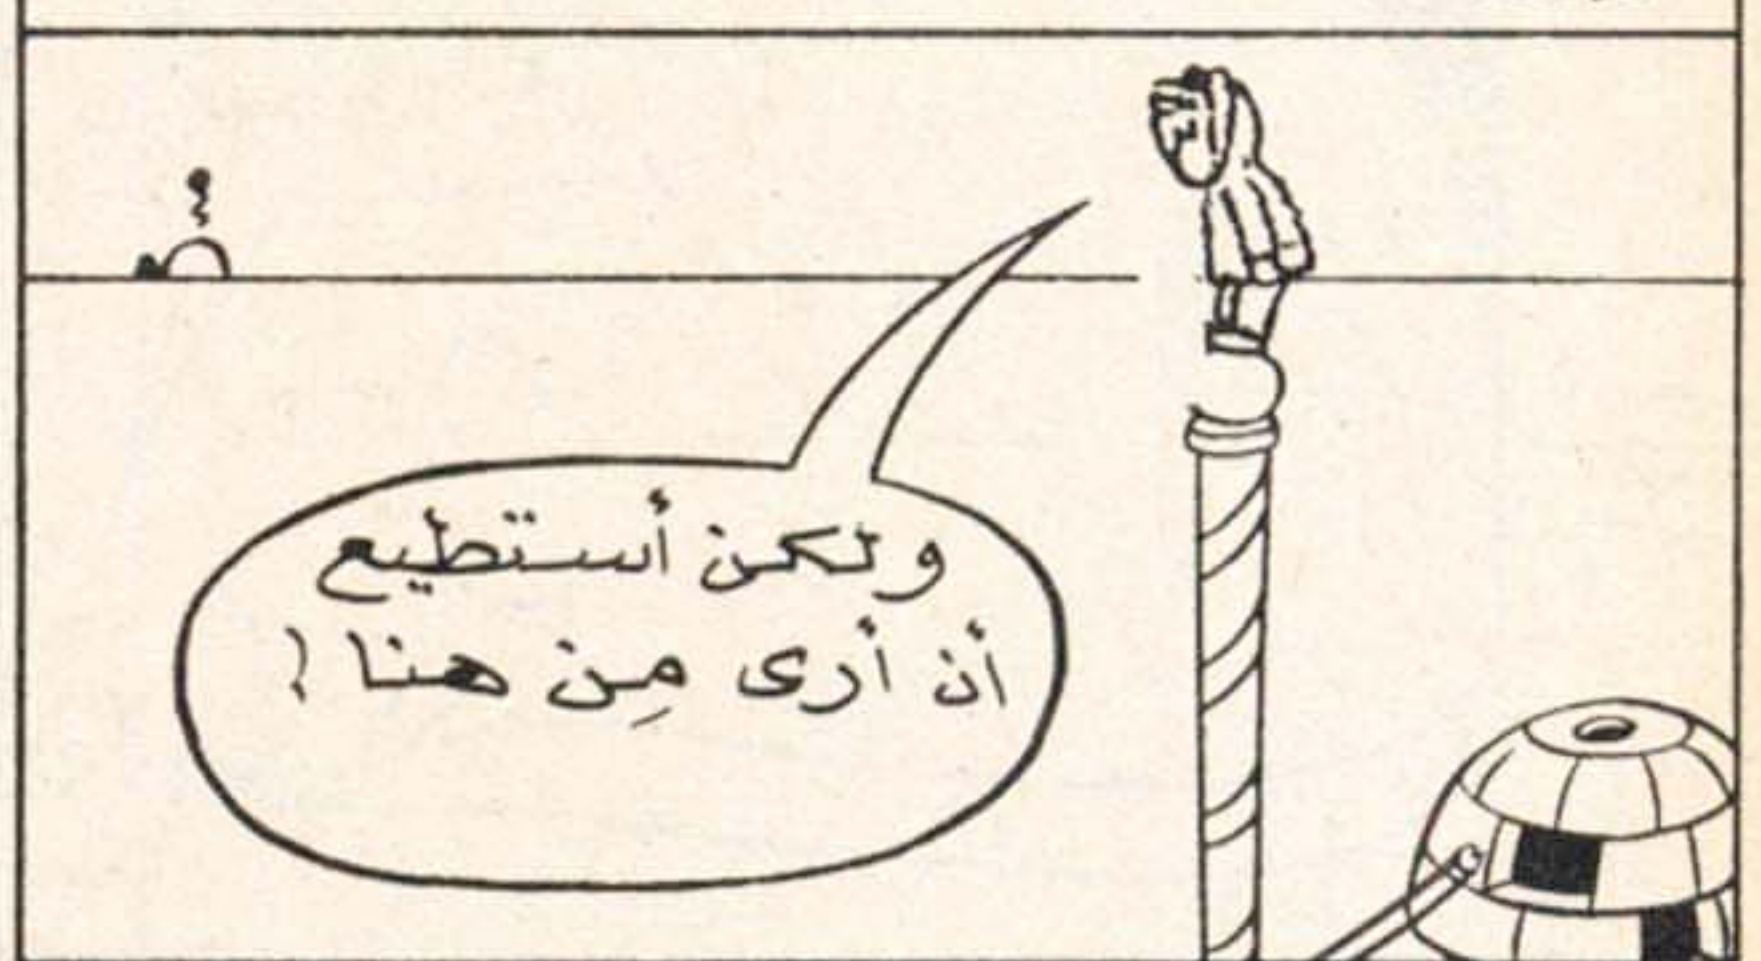 ولكن أستطيع
أن أرى مِن هنا!